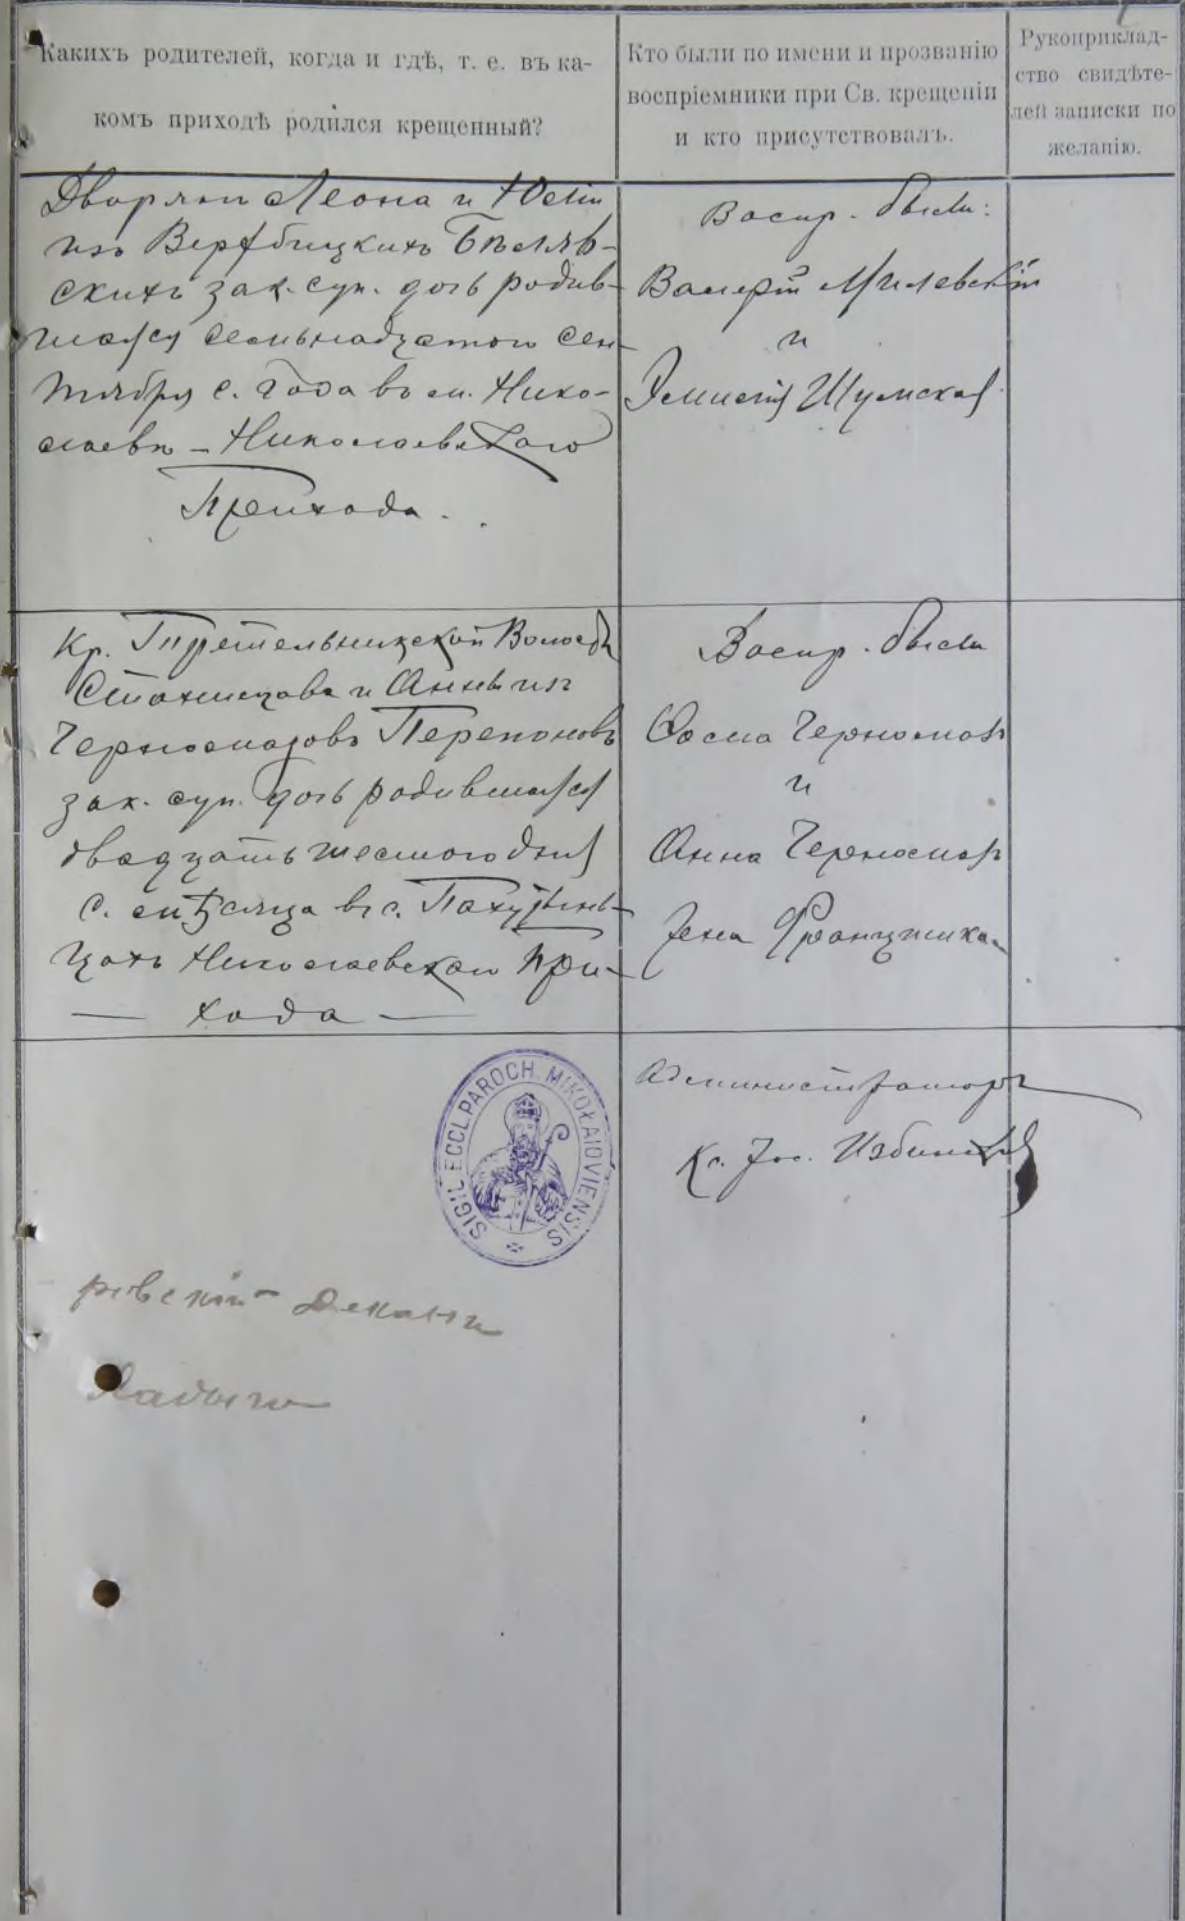 Какихъ родителей, когда и гдѣ, т. е. въ ка-
комъ приходѣ родился крещенный?
Кто были по имени и прозванію
воспріемники при Св. крещеніи
и кто присутствовалъ.
Рукоприклад-
ство свидѣте-
лей записки по
желанію.
Дворянъ Леона и Юліи
изъ Вербицкихъ Бѣляв-
скихъ зак. суп. дочь родив-
шаяся семьнадцатого сен-
тября с. года въ м. Нико-
лаевѣ - Николаевскаго
Прихода.
Воспр. были:
Валерій Милевскій
и
Эмилія Шумская
Кр. Третельницкой Волости
Станислава и Анны изъ
Черномазовъ Перепоновъ
зак. суп. дочь родившаяся
двадцать шестого дня
с. мѣсяца въ с. Пахутын-
цахъ Николаевскаго При-
хода
Воспр. были
Фома Черномазъ
и
Анна Черномазъ
жена Францишка
Администраторъ
Кс. Іос.
SIGIL. ECCL. PAROCH. MIKOŁAIOVIENSIS
ровскій Деканъ
Ладыго